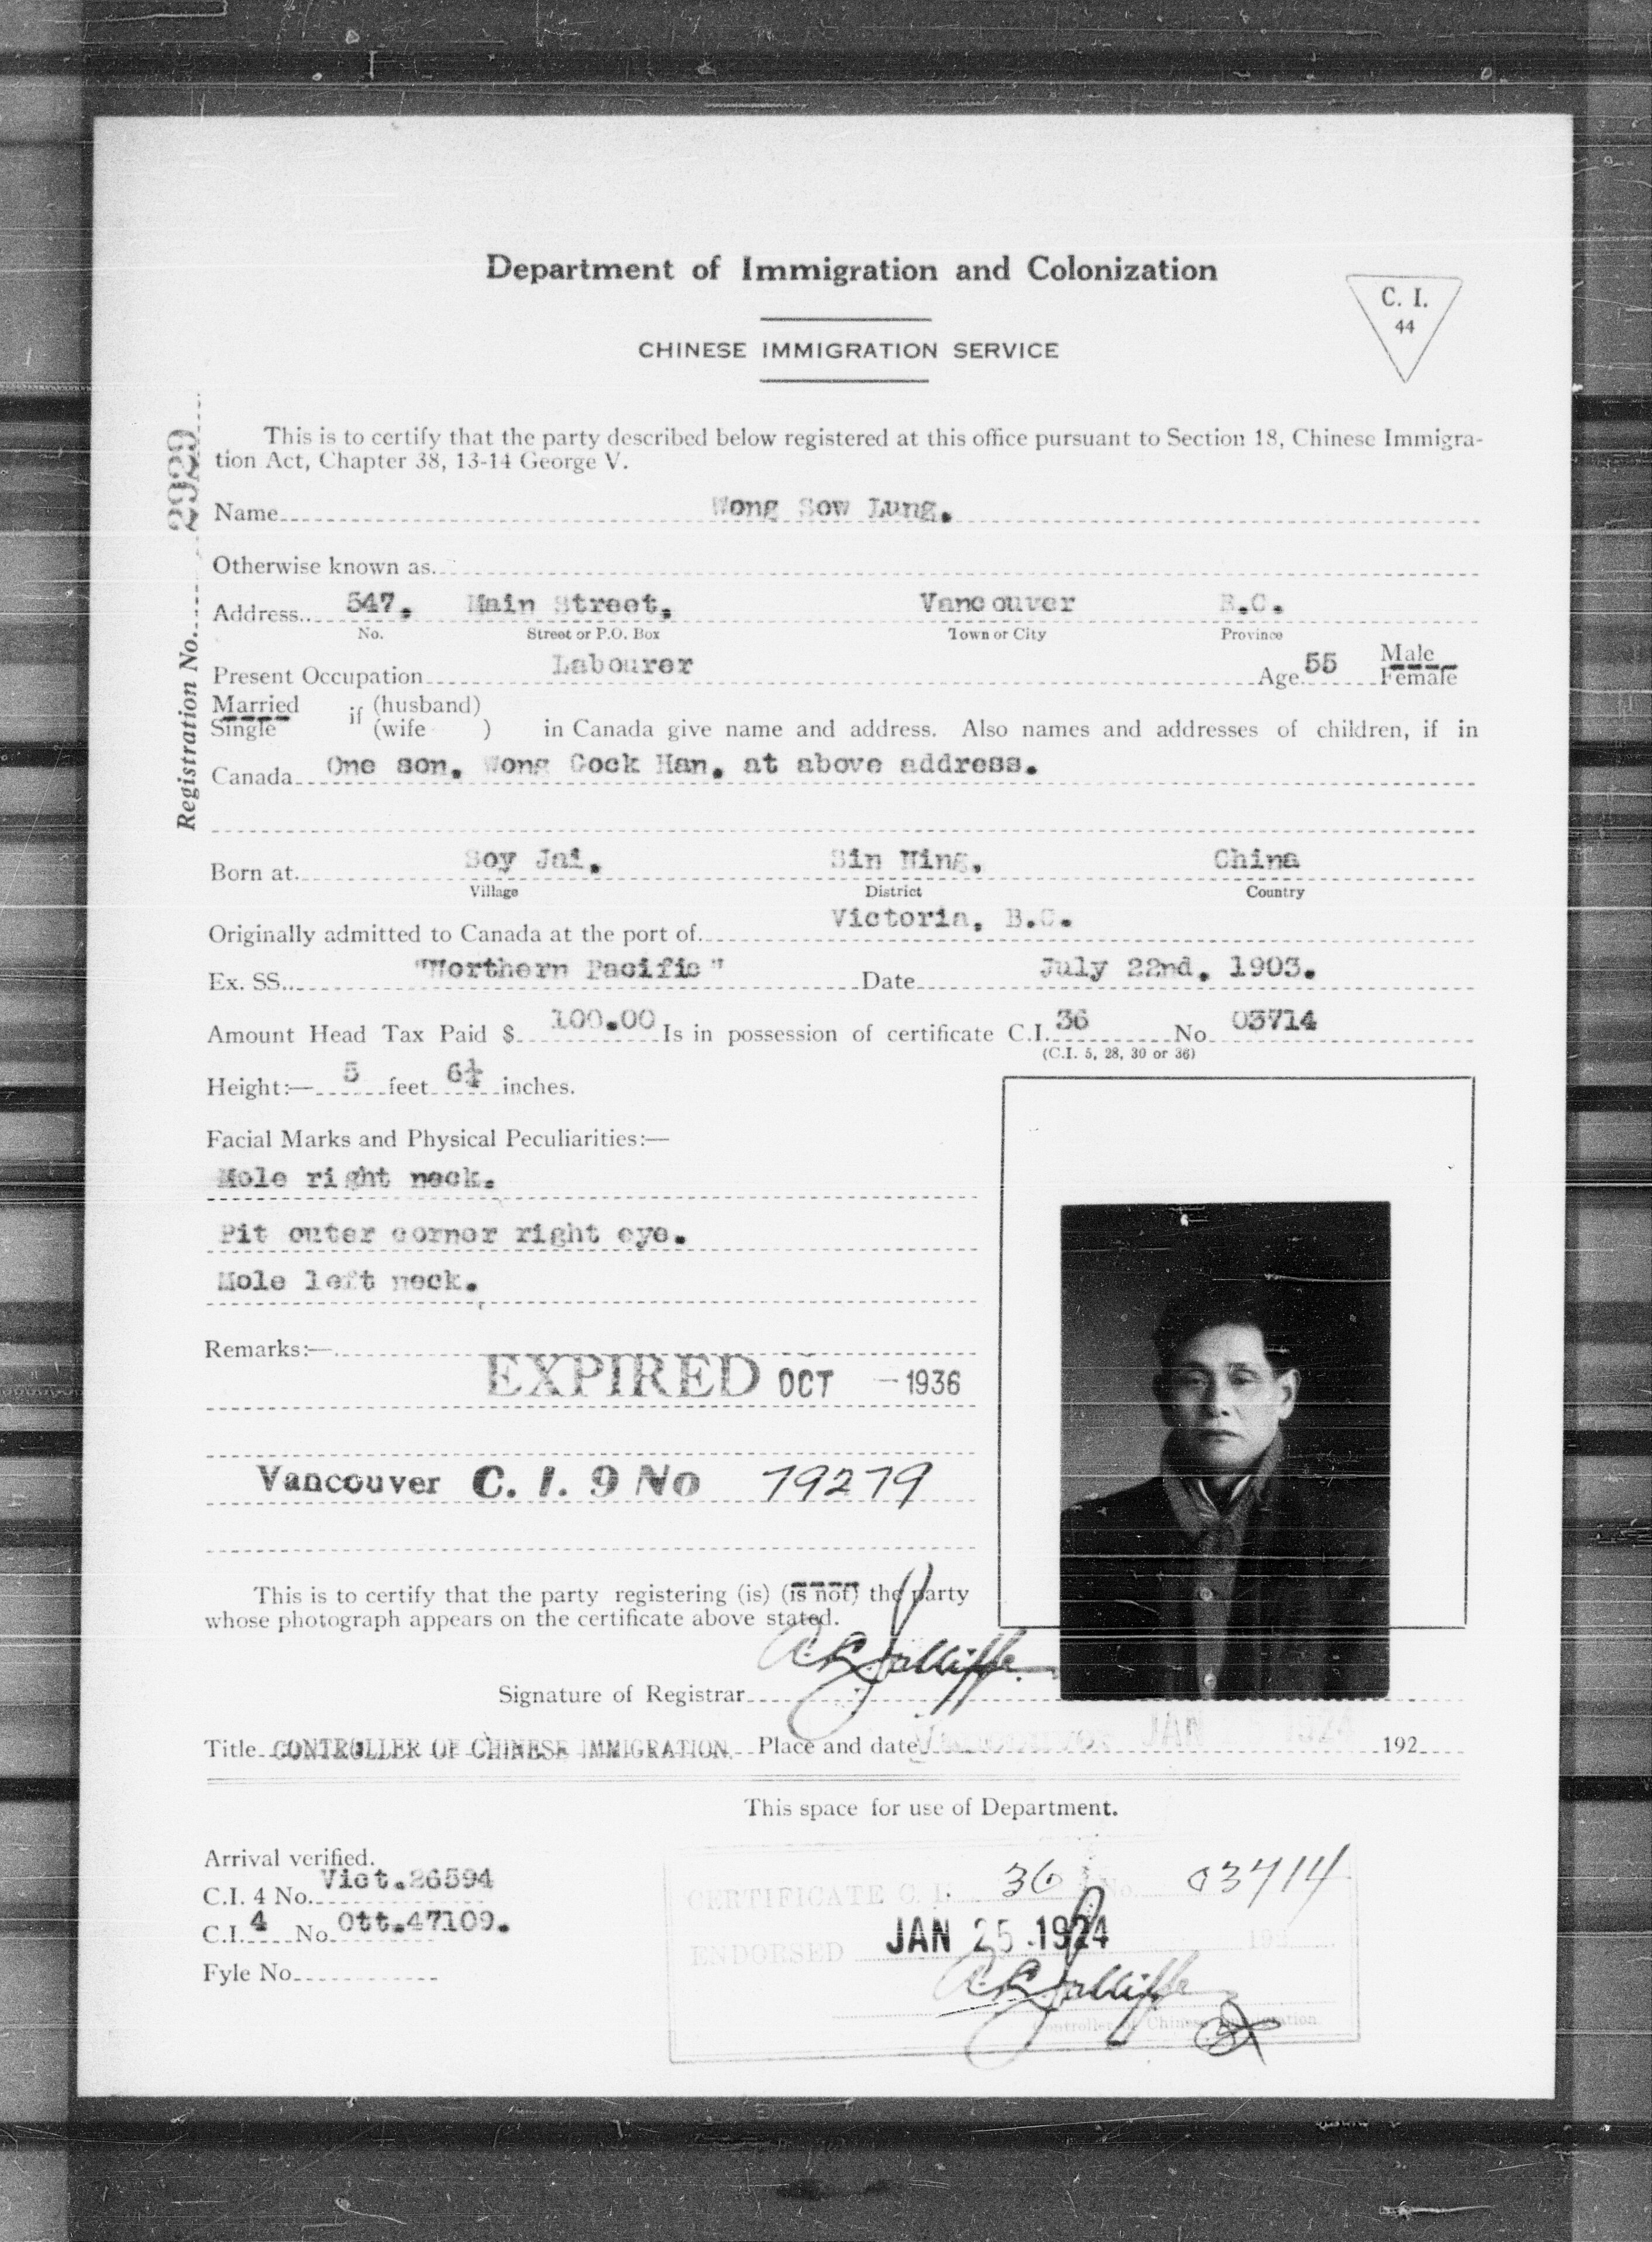 Department of Immigration and Colonization
CHINESE IMMIGRATION SERVICE
C. I.
44
Registration No. 2929
This is to certify that the party described below registered at this office pursuant to Section 18, Chinese Immigra-
tion Act, Chapter 38, 13-14 George V.
Name Wong Sow Lung.
Otherwise known as
Address 547. Main Street. Vancouver B.C.
No. Street or P.O. Box Town or City Province
Present Occupation Labourer Age 55 Male
Female
Married
Single if (husband)
(wife ) in Canada give name and address. Also names and addresses of children, if in
Canada One son. Wong Cock Han. at above address.
Born at Soy Jai. Sin Ning. China
Village District Country
Originally admitted to Canada at the port of Victoria, B.C.
Ex. SS. "Northern Pacific" Date July 22nd. 1903.
Amount Head Tax Paid $ 100.00 Is in possession of certificate C.I. 36 No 03714
(C.I. 5, 28, 30 or 36)
Height:— 5 feet 6¼ inches.
Facial Marks and Physical Peculiarities:—
Mole right neck.
Pit outer corner right eye.
Mole left neck.
Remarks:—
EXPIRED OCT - 1936
Vancouver C. I. 9 No 79279
This is to certify that the party registering (is) (is not) the party
whose photograph appears on the certificate above stated.
Signature of Registrar
Title CONTROLLER OF CHINESE IMMIGRATION Place and date Vancouver JAN 1924 192
This space for use of Department.
Arrival verified.
C.I. 4 No. Vict. 26594
C.I. 4 No. Ott. 47109.
Fyle No.
CERTIFICATE C. I. 36 No. 03714
ENDORSED JAN 25 1924 192
Controller of Chinese Immigration